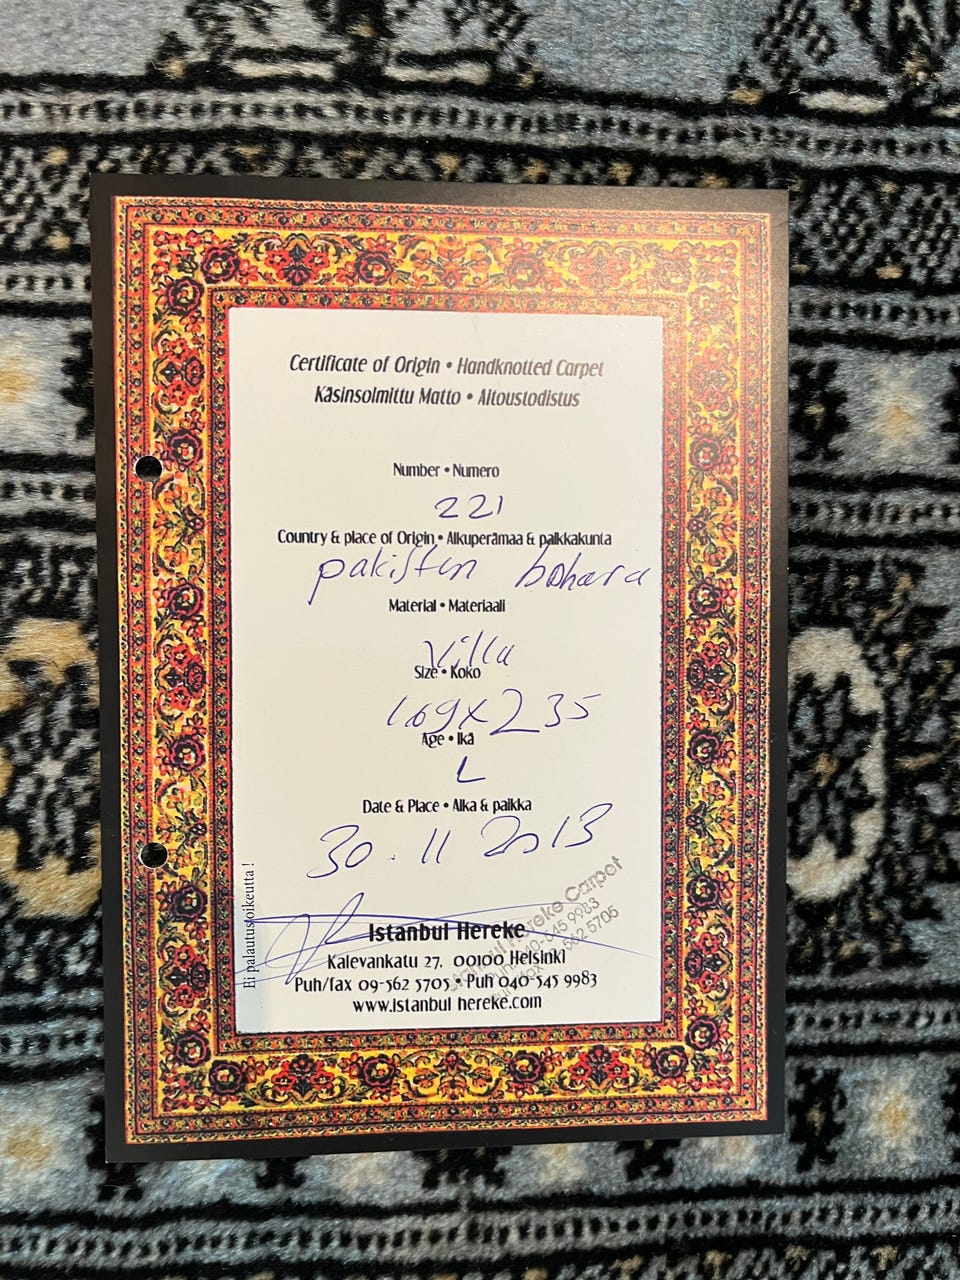 Certificate of Origin • Handknotted Carpet
Käsinsolmittu Matto • Aitoustodistus
Number • Numero
221
Country & place of Origin • Alkuperämaa & paikkakunta
pakistan bohara
Material • Materiaali
Villa
Size • Koko
1.69x235
Age • Ikä
L
Date & Place • Aika & paikka
30.11 2013
Ei palautusoikeutta!
Istanbul Hereke
Kalevankatu 27, 00100 Helsinki
Puh/fax 09-562 5705 • Puh 040-545 9983
www.istanbul hereke.com
Istanbul Hereke Carpet
Puh. 040-545 9983
562 5705